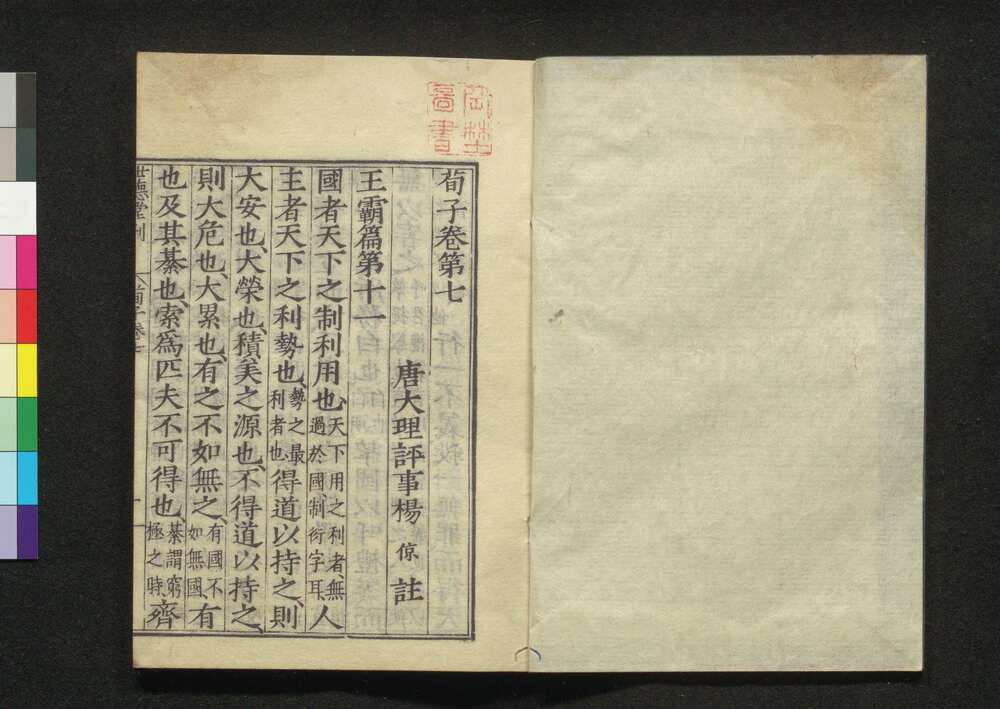 岡埜
圖書
荀子卷第七
唐大理評事楊倞註
王霸篇第十一
國者天下之制利用也天下用之利者無過於國制衍字耳人
主者天下之利勢也勢之最利者也得道以持之則
大安也大榮也積美之源也不得道以持之
則大危也大累也有之不如無之有國不如無國有
也及其綦也索爲匹夫不可得也綦謂窮極之時齊
世德堂刊
荀子卷七